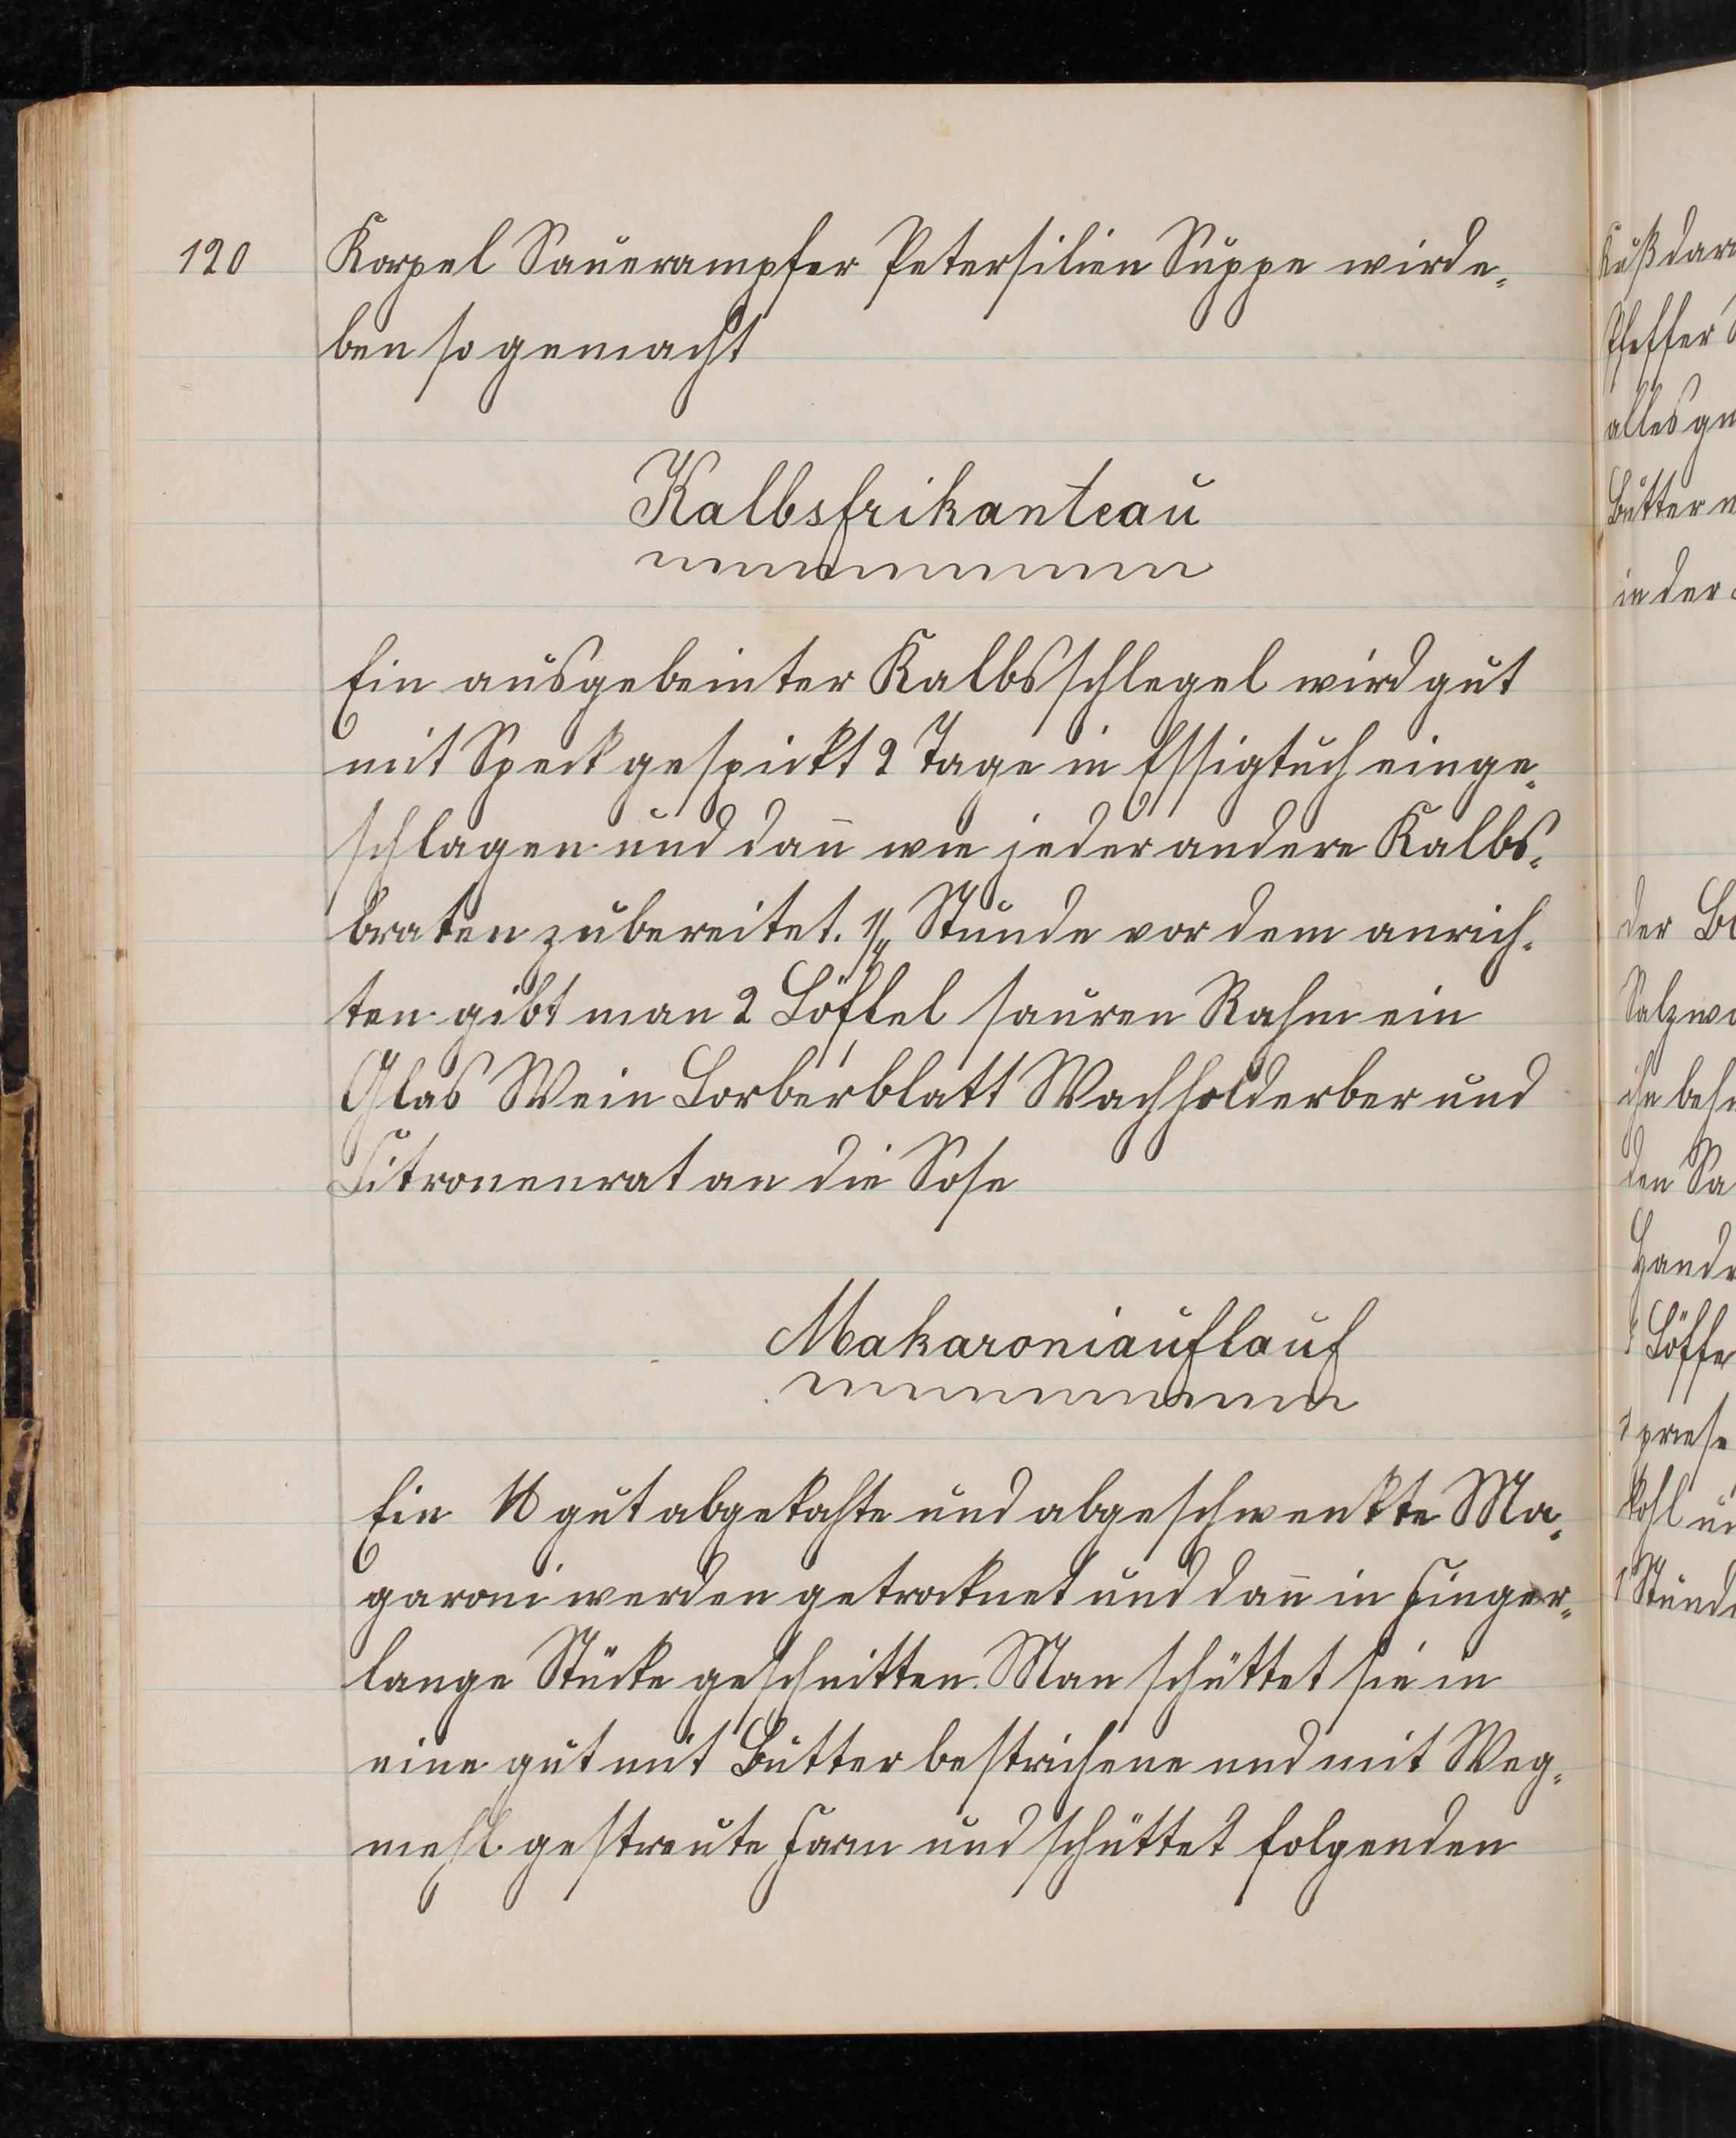 120
Korpel Sauerampfer Petersilien Suppe wird e-
ben so gemacht
Kalbsfrikanteau
Ein ausgebeinter Kalbsschlegel wird gut
mit Speck gespickt 2 Tage in Essigtuch einge-
schlagen und dan̄ wie jeder andere Kalbs-
braten zubereitet. 1/4 Stunde vor dem anrich-
ten gibt man 2 Löffel sauren Rahm ein
Glas Wein Lorberblatt Wachholderber und
Citronenrat an die Sose
Makaroniauflauf
Ein ℔ gut abgekahte und abgeschwenkte Ma-
garoni werden getrocknet und dan̄ in Finger-
lange Stücke geschnitten. Man schüttet sie in
eine gut mit Butter bestrichene und mit Weg-
mehl gestreute Farm und schüttet folgenden
Pfeffer
alles
Butter
in der
der
den
Löffe
kohl
1 Stunde